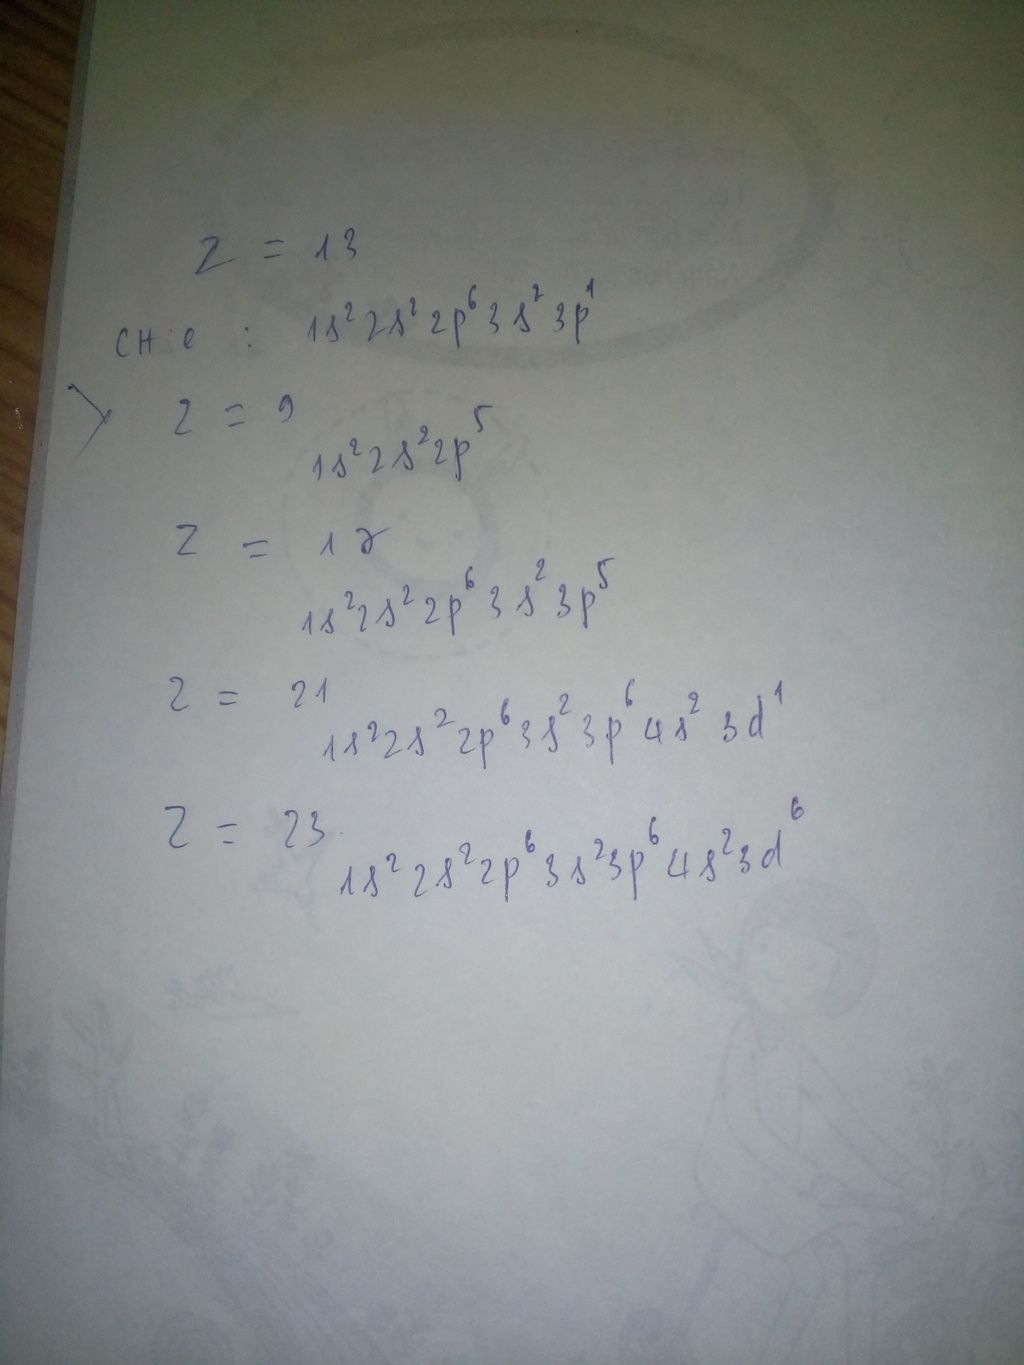 Z = 13
CH e : 1s²2s²2p⁶3s²3p¹
Z = 9
1s²2s²2p⁵
Z = 17
1s²2s²2p⁶3s²3p⁵
Z = 21
1s²2s²2p⁶3s²3p⁶4s²3d¹
Z = 23
1s²2s²2p⁶3s²3p⁶4s²3d⁶